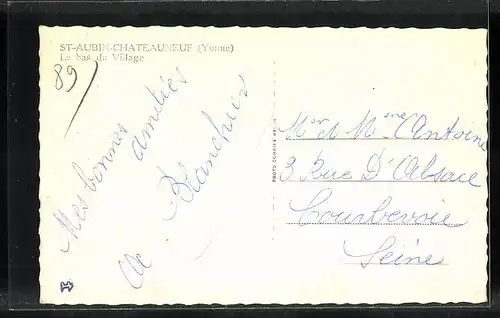 ST-AUBIN-CHATEAUNEUF (Yonne)
Le bas du Village
89
Mes bonnes amitiés
Blanchier
PHOTO COMBIER MACON
Mr et Mme Antoine
3 Rue D'Alsace
Courbevoie
Seine